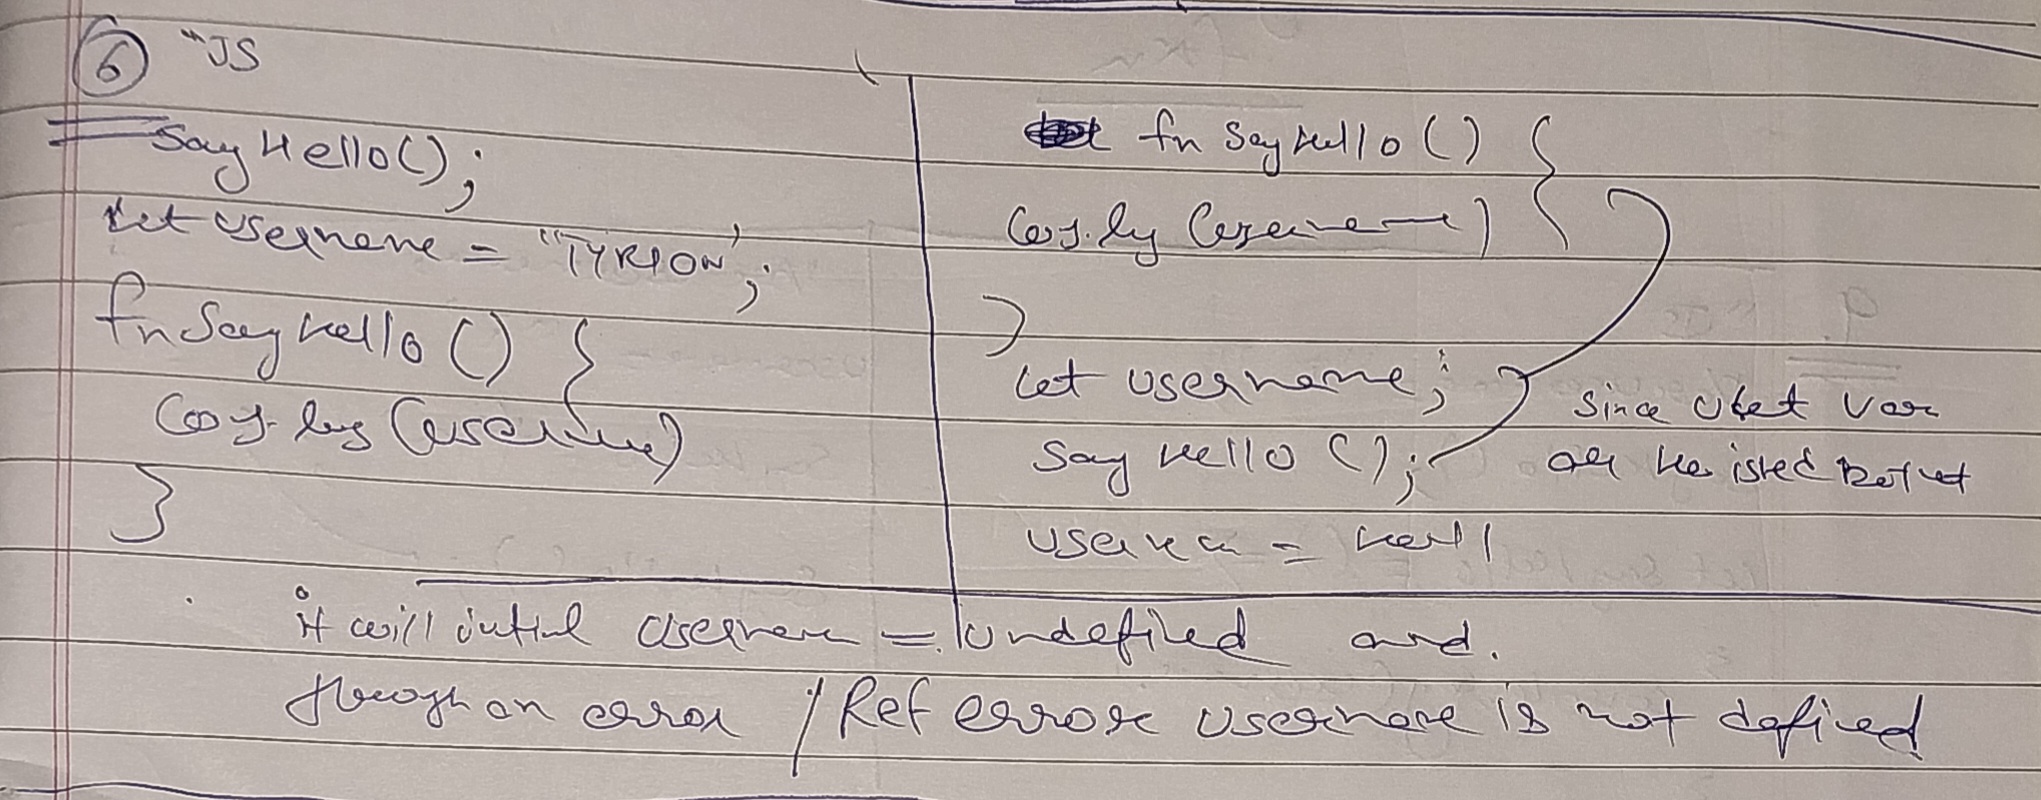 6 "JS
SayHello();
let username = "TYRION';
fn Sayhello () {
Cos.log (username)
}
fn Sayhello () {
Cos.log (username)
}
let username;
Say hello ();
since let var
are hoisted but not
usernam =
it will initial username = undefined and.
through an error / Ref error username is not defined